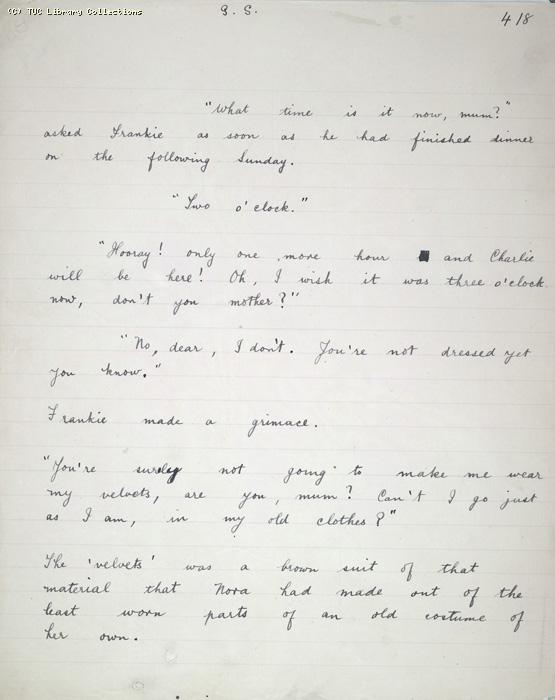 (C) TUC Library Collections
G. S.
418
"What time is it now, mum?"
asked Frankie as soon as he had finished dinner
on the following Sunday.
"Two o'clock."
"Hooray! only one more hour and Charlie
will be here! Oh, I wish it was three o'clock
now, don't you mother?"
"No, dear, I don't. You're not dressed yet
you know."
Frankie made a grimace.
"You're surely not going to make me wear
my velvets, are you, mum? Can't I go just
as I am, in my old clothes?"
The 'velvets' was a brown suit of that
material that Nora had made out of the
least worn parts of an old costume of
her own.